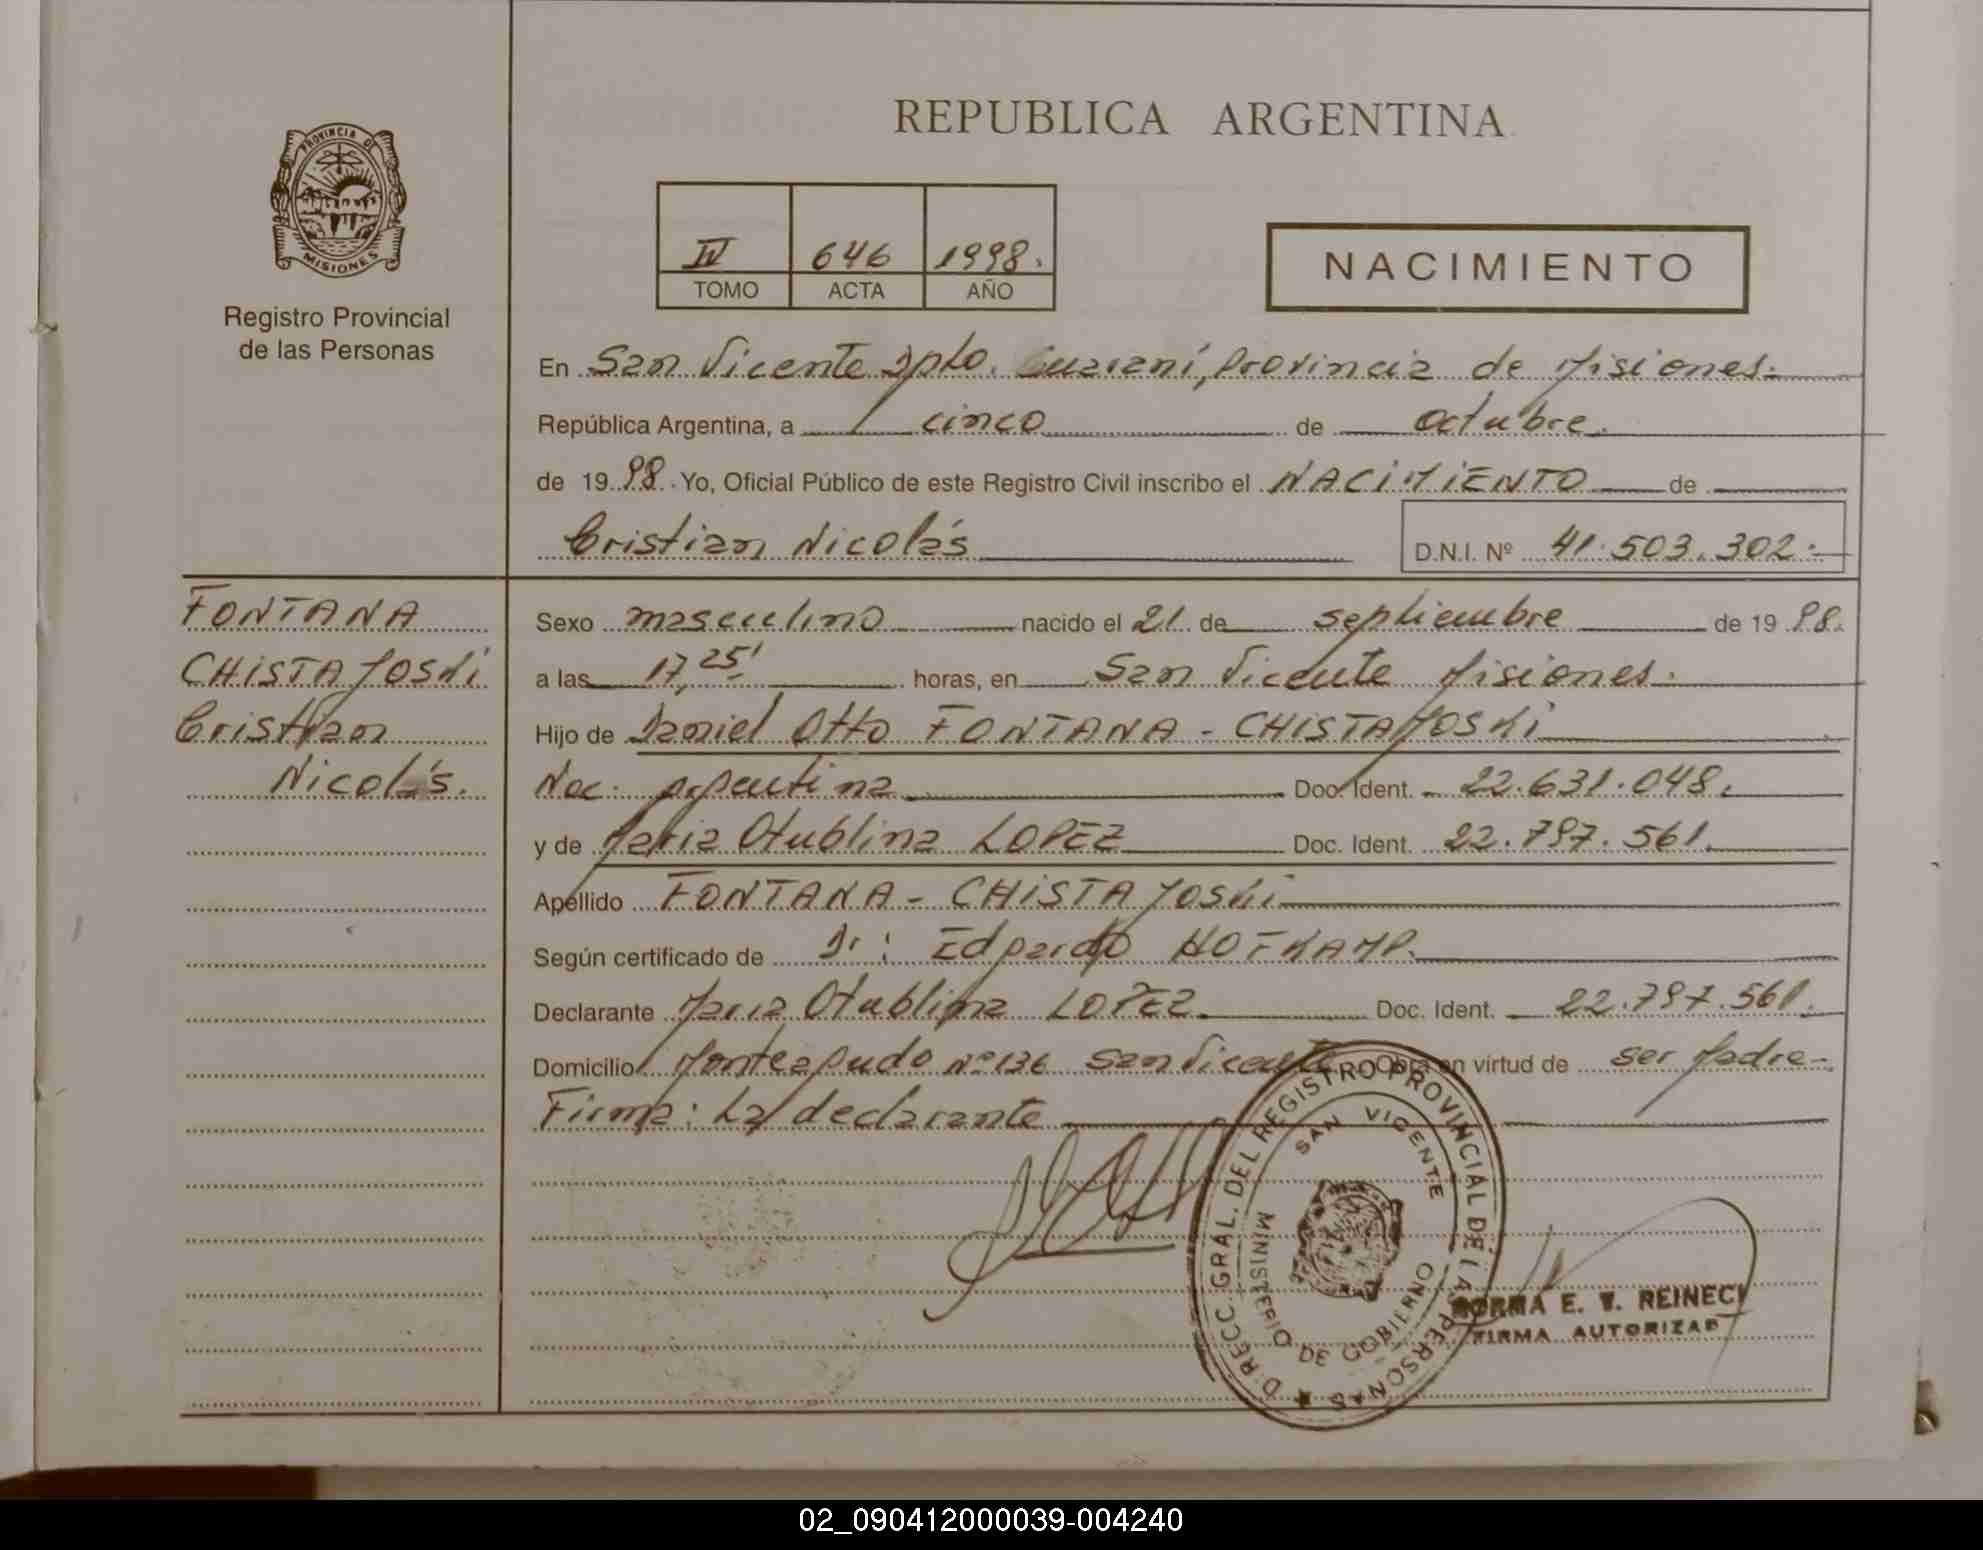 PROVINCIA DE
MISIONES
Registro Provincial
de las Personas
REPUBLICA ARGENTINA
IV 646 1998.
TOMO ACTA AÑO
NACIMIENTO
En San Vicente Dpto. Guaraní, Provincia de Misiones.
República Argentina, a cinco de octubre.
de 1998. Yo, Oficial Público de este Registro Civil inscribo el NACIMIENTO de
Cristian Nicolás D.N.I. Nº 41.503.302.
FONTANA
CHISTAMOSKI
Cristian
Nicolás.
Sexo masculino nacido el 21 de septiembre de 1998.
a las 17,25' horas, en San Vicente Misiones.
Hijo de Daniel Otto FONTANA - CHISTAMOSKI
Nac. argentina Doc. Ident. 22.631.048.
y de Maria Otublina LOPEZ Doc. Ident. 22.797.561.
Apellido FONTANA - CHISTAMOSKI
Según certificado de Dr: Edgardo HOFKAMP.
Declarante Maria Otublina LOPEZ Doc. Ident. 22.797.561.
Domicilio Monteagudo Nº 136 San Vicente Obra en virtud de ser Madre
Firma: La declarante
DIRECC. GRAL. DEL REGISTRO PROVINCIAL DE LAS PERSONAS
SAN VICENTE
MINISTERIO DE GOBIERNO
NORMA E. V. REINECK
FIRMA AUTORIZAD
02_090412000039-004240